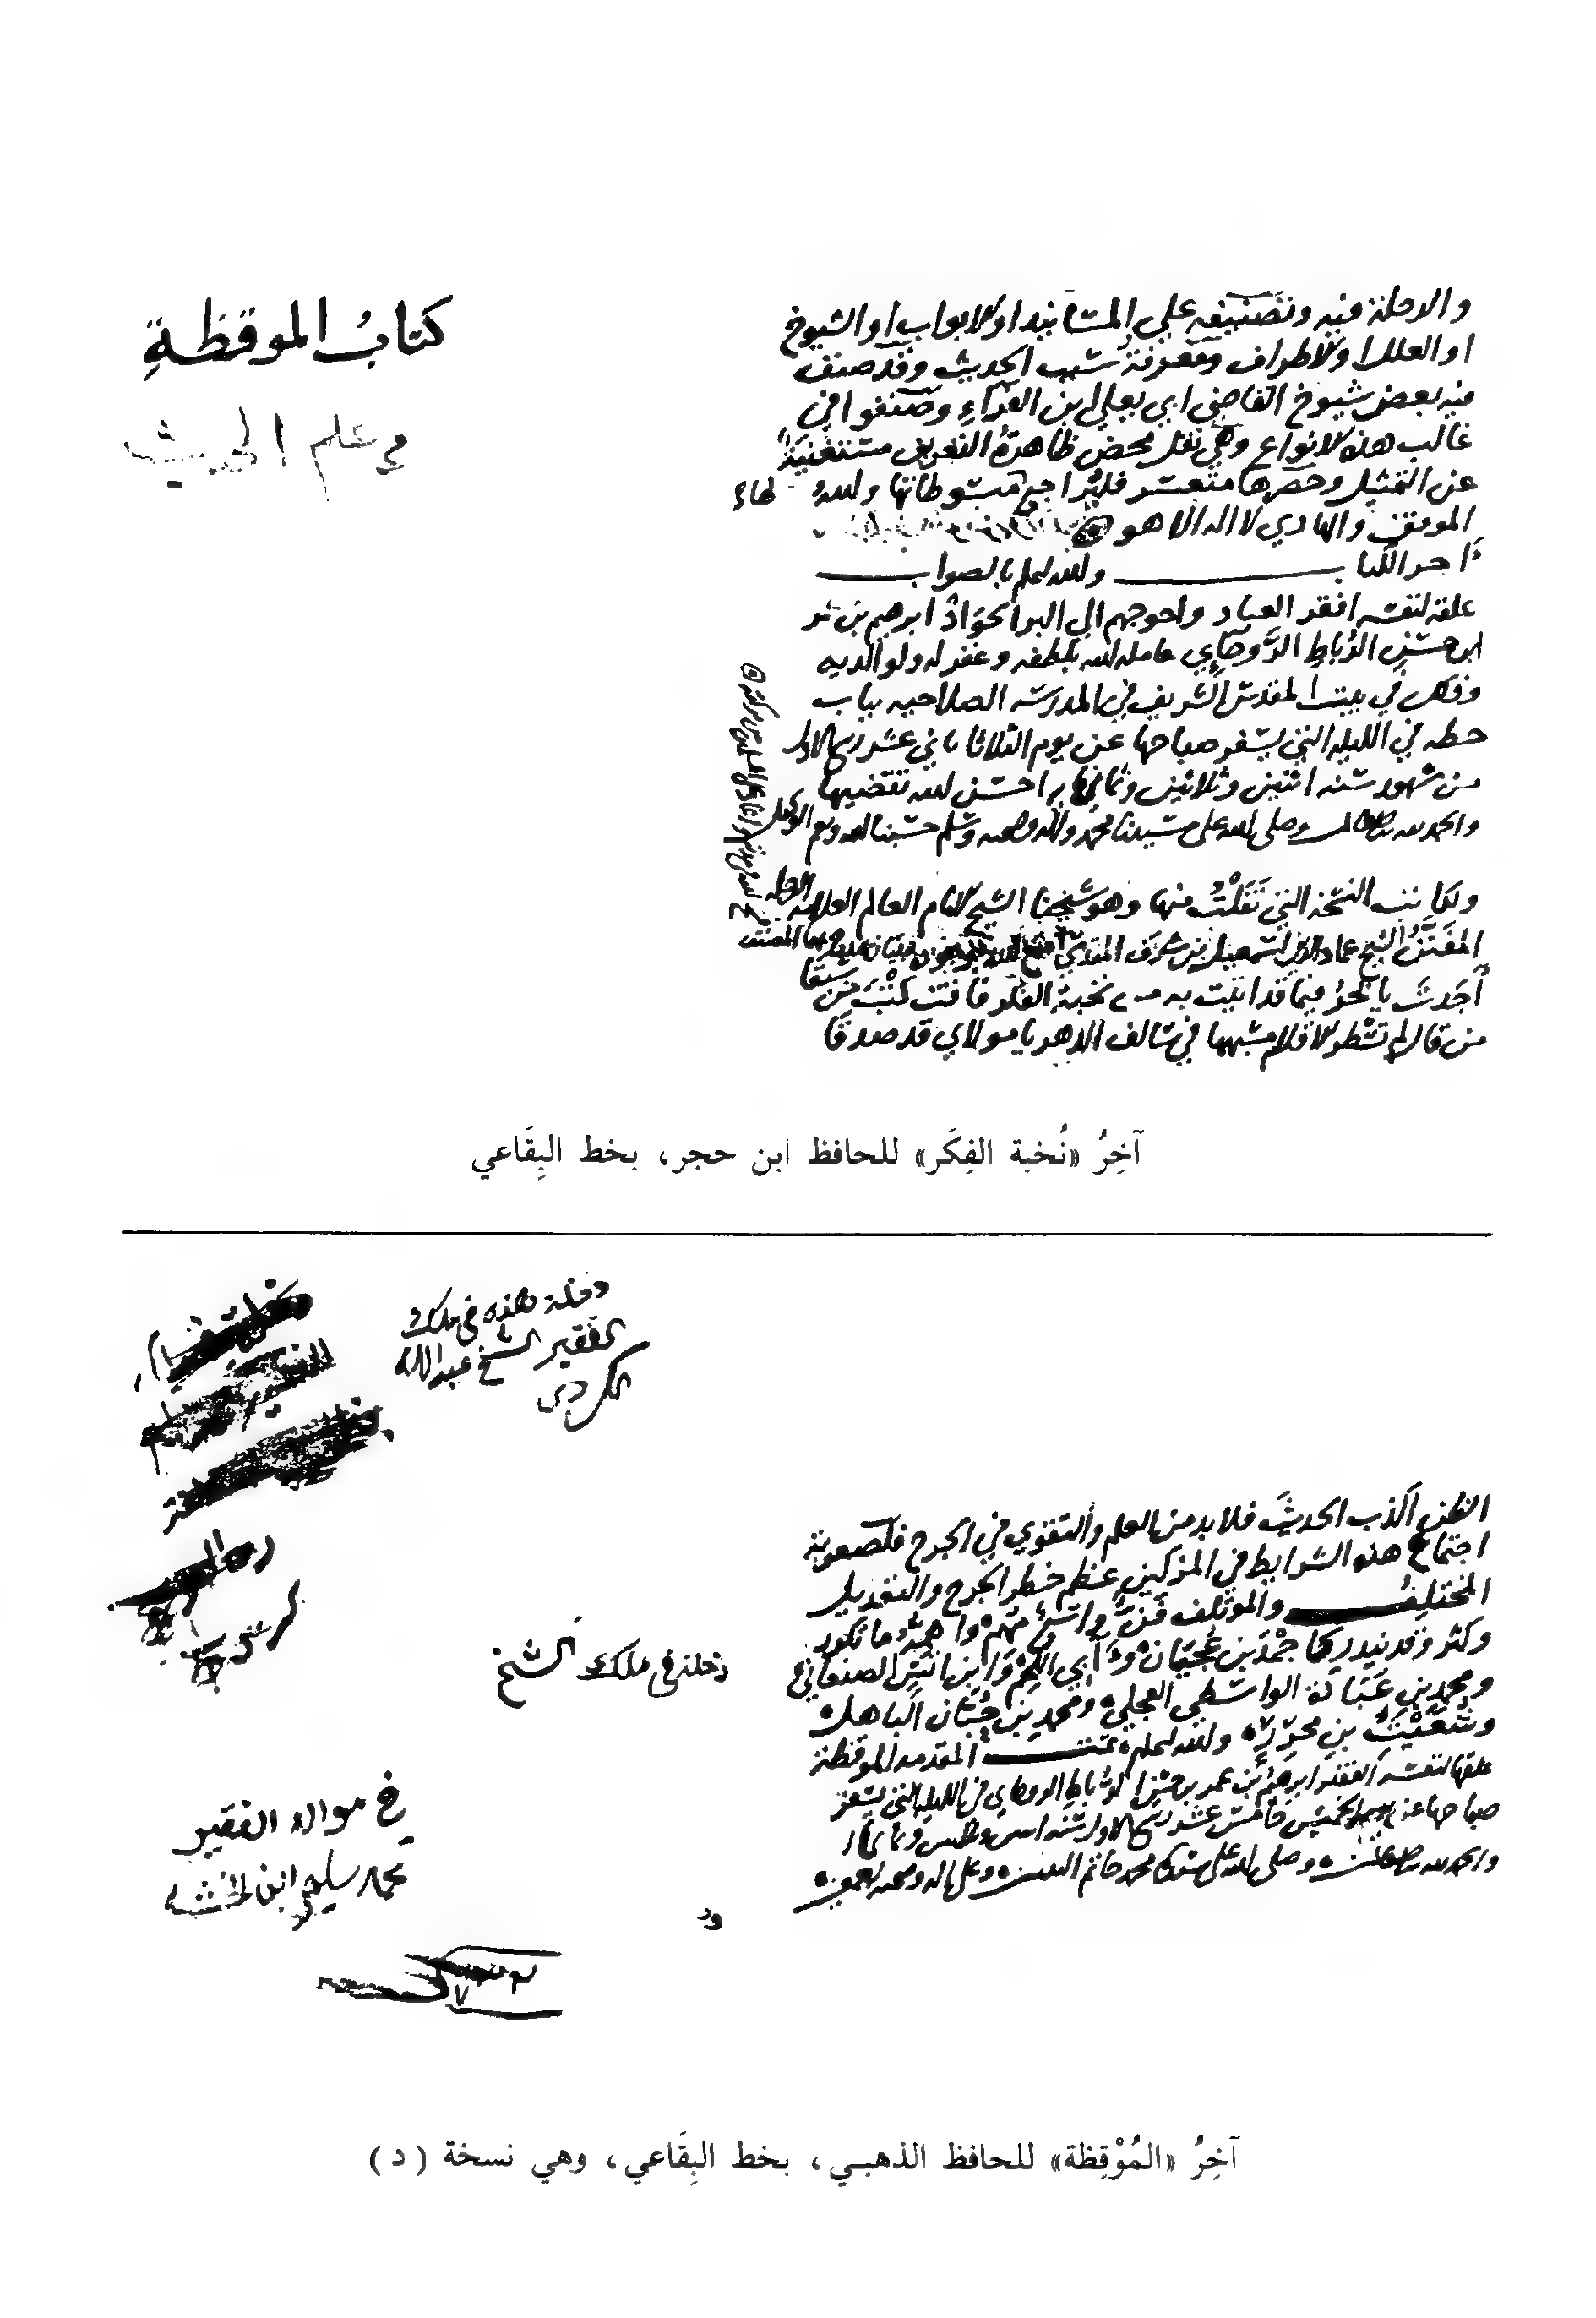 كتابُ الموقظةِ
في علم الحديث
والرحلة فيه وتصنيفه علي المسانيد او الابواب او الشيوخ
او العلل او الاطراف ومعرفة سبب الحديث وقد صنف
فيه بعض شيوخ القاضي ابي يعلي ابن الفراءِ وصنفوا في
غالب هذه الانواع وهي نقل محض ظاهرة التعريف مستغنية
عن التمثيل وحصرها متعسر فليراجع مبسوطاتها والله
الموفق والهادي لا اله الا هو
آخر الكتاب والله اعلم بالصواب
علقه لنفسه افقر العباد واحوجهم الي البر الجواد ابرهيم بن عمر
ابن حسن الرُباطِ
عامله الله بلطفه وغفر له ولوالديه
وذلك في بيت المقدس الشريف في المدرسه الصلاحيه بباب
حطه في الليله التي يسفر صباحها عن يوم الثلاثا ثاني عشر ربيع الاول
من شهور سنه اثنين وثلاثين وثماني ماية احسن الله تقضيها
والحمد لله وصلى الله على سيدنا محمد واله وصحبه وسلم حسبنا الله ونعم الوكيل
النسخه التي نَقَلْتُ منها وهو شيخنا الشيخ الامام العالم العلامه
الشيخ عماد الدين اسمعيل بن شرف المقدسي
فيما قد اتيت به من نخبة الفكر
من قال لم تسطر الاقلام مشبهها في سالف الدهر يا مولاي قد صدقا
آخِرُ «نُخبة الفِكَر» للحافظ ابن حجر، بخط البِقَاعي
دخلة هذه في ملك
الفقير الشيخ عبدالله
الكردي
الظن اكذب الحديث فلا بد من العلم والتقوي في الجرح فلصعوبة
اجتماع هذه الشرايط في المزكين عظم خطر الجرح والتعديل
المختلِفُ والموتلف فَنٌّ واسع مهم واهمه ما تكرر
وكثر وقد يندر كاحمد بن عُجيان وآبي اللحم وابن اتش الصنعاني
ومحمد بن عَبَادة الواسطي العجلي ومحمد بن حُبّان الباهلي
وشُعَيْث بن محرّر والله اعلم تمت المقدمه الموقظة
علقها لنفسه الفقير ابرهيم بن عمر بن حسن الرُباط
في الليله التي يسفر
صباحها عن يوم الخميس خامس عشر ربيع الاول سنه
والحمد لله وصلى الله على سيدنا محمد خاتم النبيين وعلى اله وصحبه اجمعين
دخلة في ملك الشيخ
الفقير
آخِرُ «المُوْقِظة» للحافظ الذهبي، بخط البِقَاعي، وهي نسخة (د)